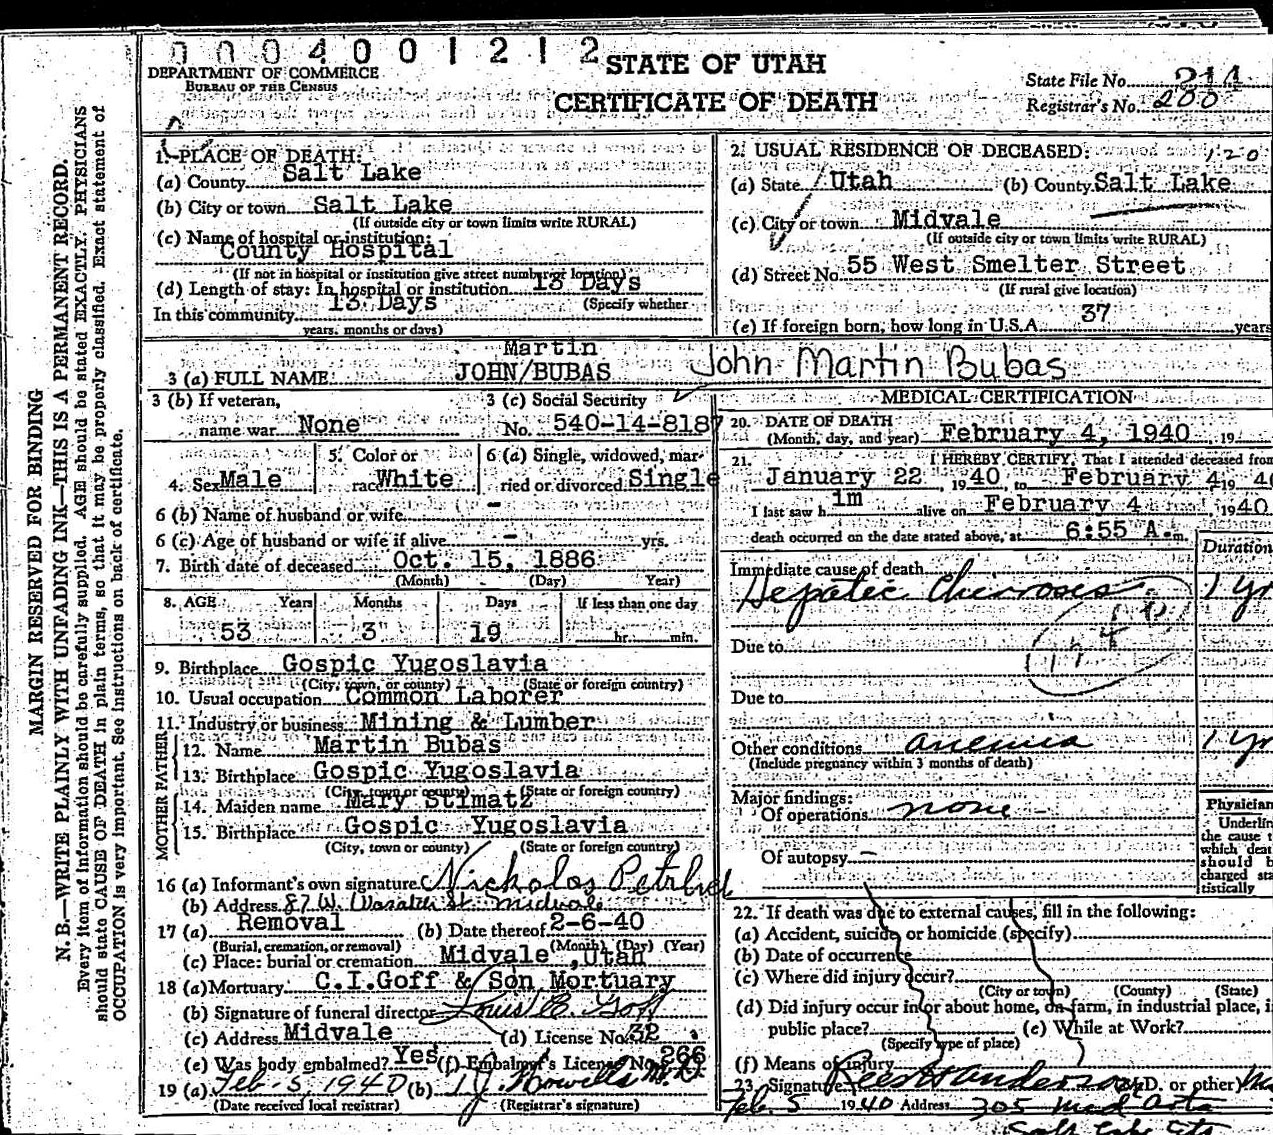 0 0 0 4 0 0 1 2 1 2
DEPARTMENT OF COMMERCE
BUREAU OF THE CENSUS
STATE OF UTAH
CERTIFICATE OF DEATH
State File No. 214
Registrar's No. 200
MARGIN RESERVED FOR BINDING
N. B.—WRITE PLAINLY WITH UNFADING INK—THIS IS A PERMANENT RECORD.
Every item of information should be carefully supplied. AGE should be stated EXACTLY. PHYSICIANS
should state CAUSE OF DEATH in plain terms, so that it may be properly classified. Exact statement of
OCCUPATION is very important. See instructions on back of certificate.
1. PLACE OF DEATH:
(a) County Salt Lake
(b) City or town Salt Lake
(If outside city or town limits write RURAL)
(c) Name of hospital or institution:
County Hospital
(If not in hospital or institution give street number or location)
(d) Length of stay: In hospital or institution 13 Days
(Specify whether
In this community 13 Days
years, months or days)
2. USUAL RESIDENCE OF DECEASED: 120
(a) State Utah (b) County Salt Lake
(c) City or town Midvale
(If outside city or town limits write RURAL)
(d) Street No. 55 West Smelter Street
(If rural give location)
(e) If foreign born, how long in U.S.A. 37 years
Martin
3 (a) FULL NAME JOHN/BUBAS John Martin Bubas
3 (b) If veteran,
name war None
3 (c) Social Security
No. 540-14-8187
4. Sex Male
5. Color or
race White
6 (a) Single, widowed, mar-
ried or divorced Single
6 (b) Name of husband or wife -
6 (c) Age of husband or wife if alive - yrs.
7. Birth date of deceased Oct. 15, 1886
(Month) (Day) Year)
8. AGE Years Months Days If less than one day
53 3 19 hr. min.
9. Birthplace Gospic Yugoslavia
(City, town, or county) (State or foreign country)
10. Usual occupation Common Laborer
11. Industry or business Mining & Lumber
FATHER
12. Name Martin Bubas
13. Birthplace Gospic Yugoslavia
(City, town or county) (State or foreign country)
MOTHER
14. Maiden name Mary Stimatz
15. Birthplace Gospic Yugoslavia
(City, town or county) (State or foreign country)
16 (a) Informant's own signature Nickolas
(b) Address 87 W. Wasatch St. Midvale
17 (a) Removal (b) Date thereof 2-6-40
(Burial, cremation, or removal) (Month) (Day) (Year)
(c) Place: burial or cremation Midvale, Utah
18 (a) Mortuary C.I.Goff & Son Mortuary
(b) Signature of funeral director Louis E. Goff
(c) Address Midvale (d) License No. 32
(e) Was body embalmed? Yes (f) Embalmer's License No. 266
19 (a) Feb. 5, 1940 (b) Howells M.D.
(Date received local registrar) (Registrar's signature)
MEDICAL CERTIFICATION
20. DATE OF DEATH
(Month, day, and year) February 4, 1940, 19
21. I HEREBY CERTIFY, That I attended deceased from
January 22, 1940, to February 4, 19 40
I last saw h im alive on February 4 1940
death occurred on the date stated above, at 6:55 A.m.
Duration
Immediate cause of death
Hepatic Chirrosis 1 yr
Due to
Due to
Other conditions anemia 1 yr
(Include pregnancy within 3 months of death)
Major findings:
Of operations none
Of autopsy —
Physician
Underlin
the cause t
which deat
should b
charged sta
tistically
22. If death was due to external causes, fill in the following:
(a) Accident, suicide or homicide (specify)
(b) Date of occurrence
(c) Where did injury occur?
(City or town) (County) (State)
(d) Did injury occur in or about home, on farm, in industrial place, i
public place? (e) While at Work?
(Specify type of place)
(f) Means of injury
23. Signature Anderson (M.D. or other)
Feb. 5 1940 Address 305 Med Arts
Salt Lake City